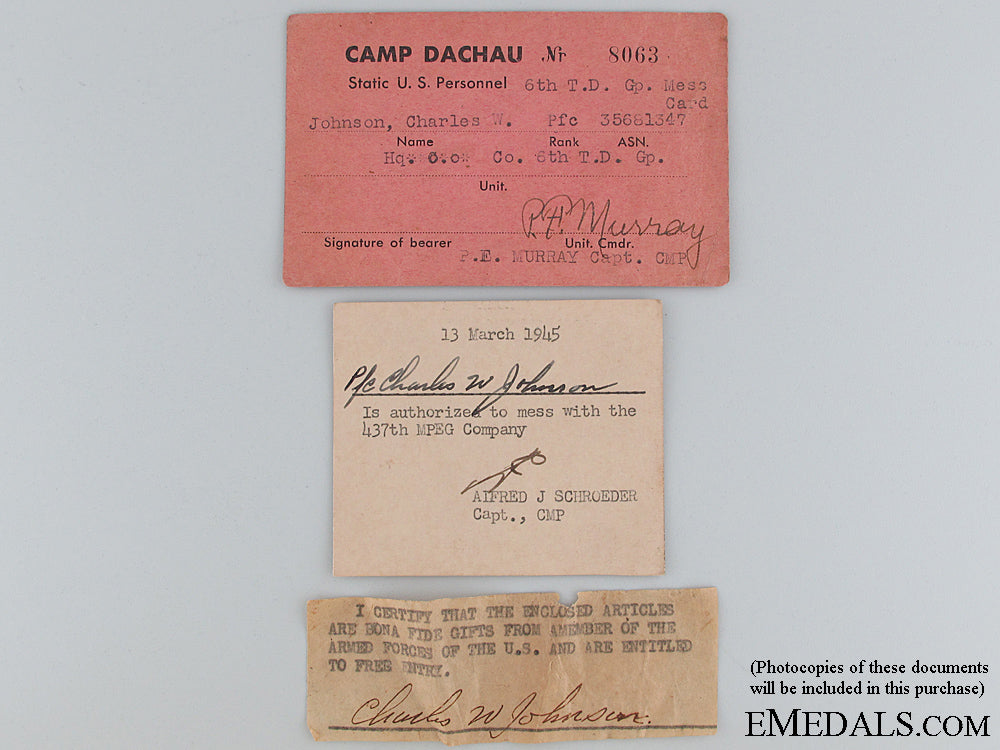 CAMP DACHAU Nr 8063
Static U. S. Personnel 6th T.D. Gp. Mess
Card
Johnson, Charles W. Pfc 35681347
Name Rank ASN.
Hq. Co. 6th T.D. Gp.
Unit.
P.E. Murray
Signature of bearer Unit. Cmdr.
P.E. MURRAY Capt. CMP
13 March 1945
Pfc Charles W Johnson
Is authorized to mess with the
437th MPEG Company
AlFRED J SCHROEDER
Capt., CMP
I CERTIFY THAT THE ENCLOSED ARTICLES
ARE BONA FIDE GIFTS FROM AMEMBER OF THE
ARMED FORCES OF THE U.S. AND ARE ENTITLED
TO FREE ENTRY.
Charles W Johnson.
(Photocopies of these documents
will be included in this purchase)
EMEDALS.COM